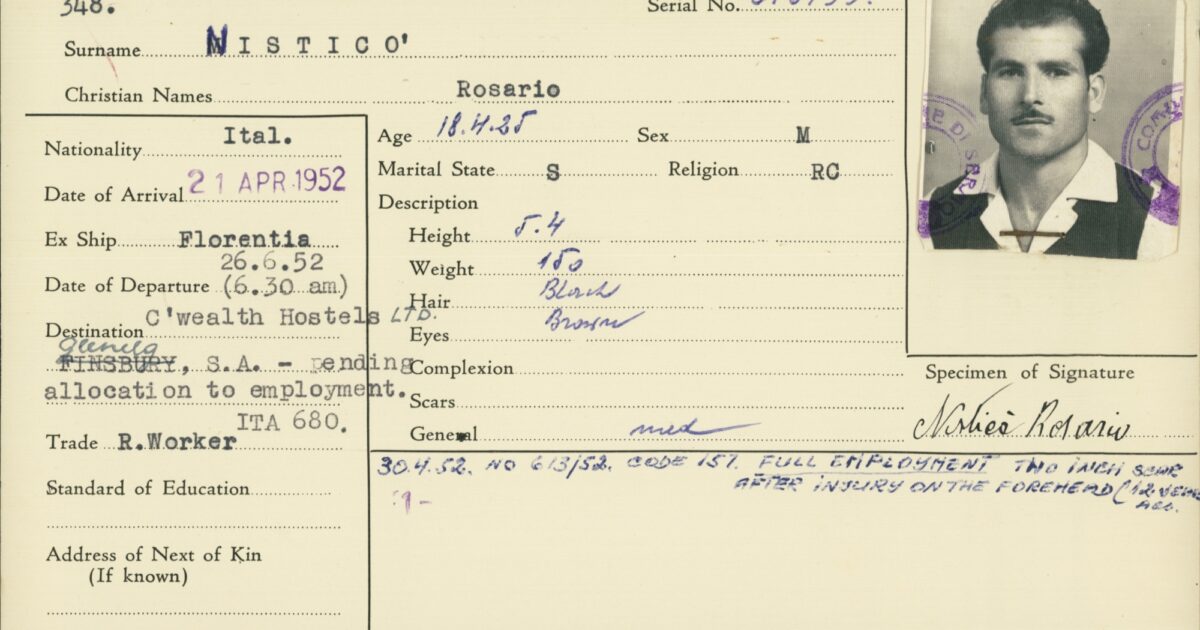 348.
Serial No.
Surname NISTICO'
Christian Names Rosario
Nationality Ital.
Date of Arrival 21 APR 1952
Ex Ship Florentia
26.6.52
Date of Departure (6.30 am)
Destination C'wealth Hostels LTD.
Glenelg
FINSBURY, S.A. - pending
allocation to employment.
ITA 680.
Trade R.Worker
Standard of Education
Address of Next of Kin
(If known)
Age 18.4.25 Sex M
Marital State S Religion RC
Description
Height 5.4
Weight 150
Hair Black
Eyes Brown
Complexion
Scars
General med
Specimen of Signature
Nisticò Rosario
30.4.52. NO 613/52. CODE 157. FULL EMPLOYMENT TWO INCH SCAR
AFTER INJURY ON THE FOREHEAD (12 YEARS
AGO.